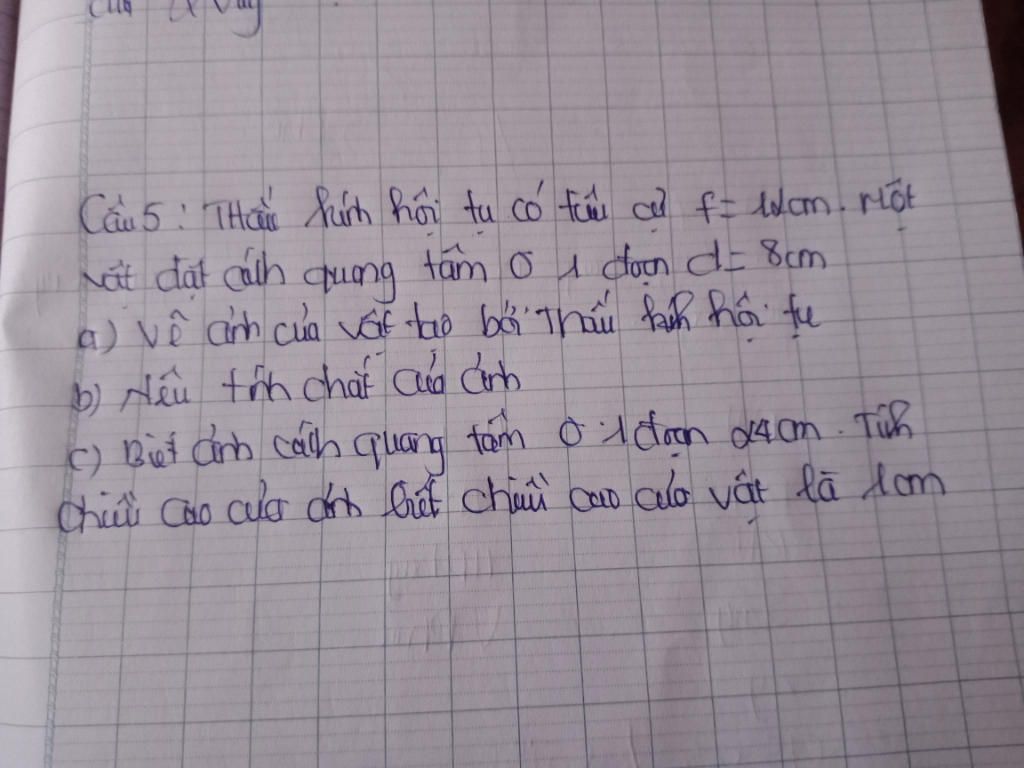 của vậy
Câu 5: Thấu kính hội tụ có tiêu cự f = 12cm. Một
vật đặt cách quang tâm O 1 đoạn d = 8cm
a) Vẽ ảnh của vật tạo bởi Thấu kính hội tụ
b) Nêu tính chất của ảnh
c) Biết ảnh cách quang tâm O 1 đoạn 24cm. Tính
chiều cao của ảnh biết chiều cao của vật là 1cm